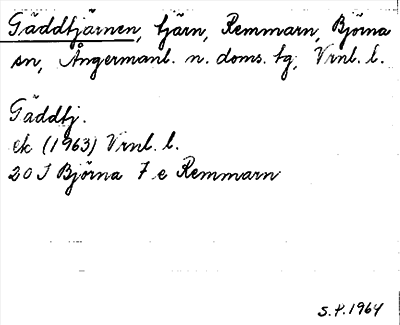 Gäddtjärnen, tjärn, Remmarn, Björna
sn, Ångermanl. n. doms. tg, Vrnl. l.
Gäddtj.
ek (1963) Vrnl. l.
20 J Björna 7 e Remmarn
S.P. 1964